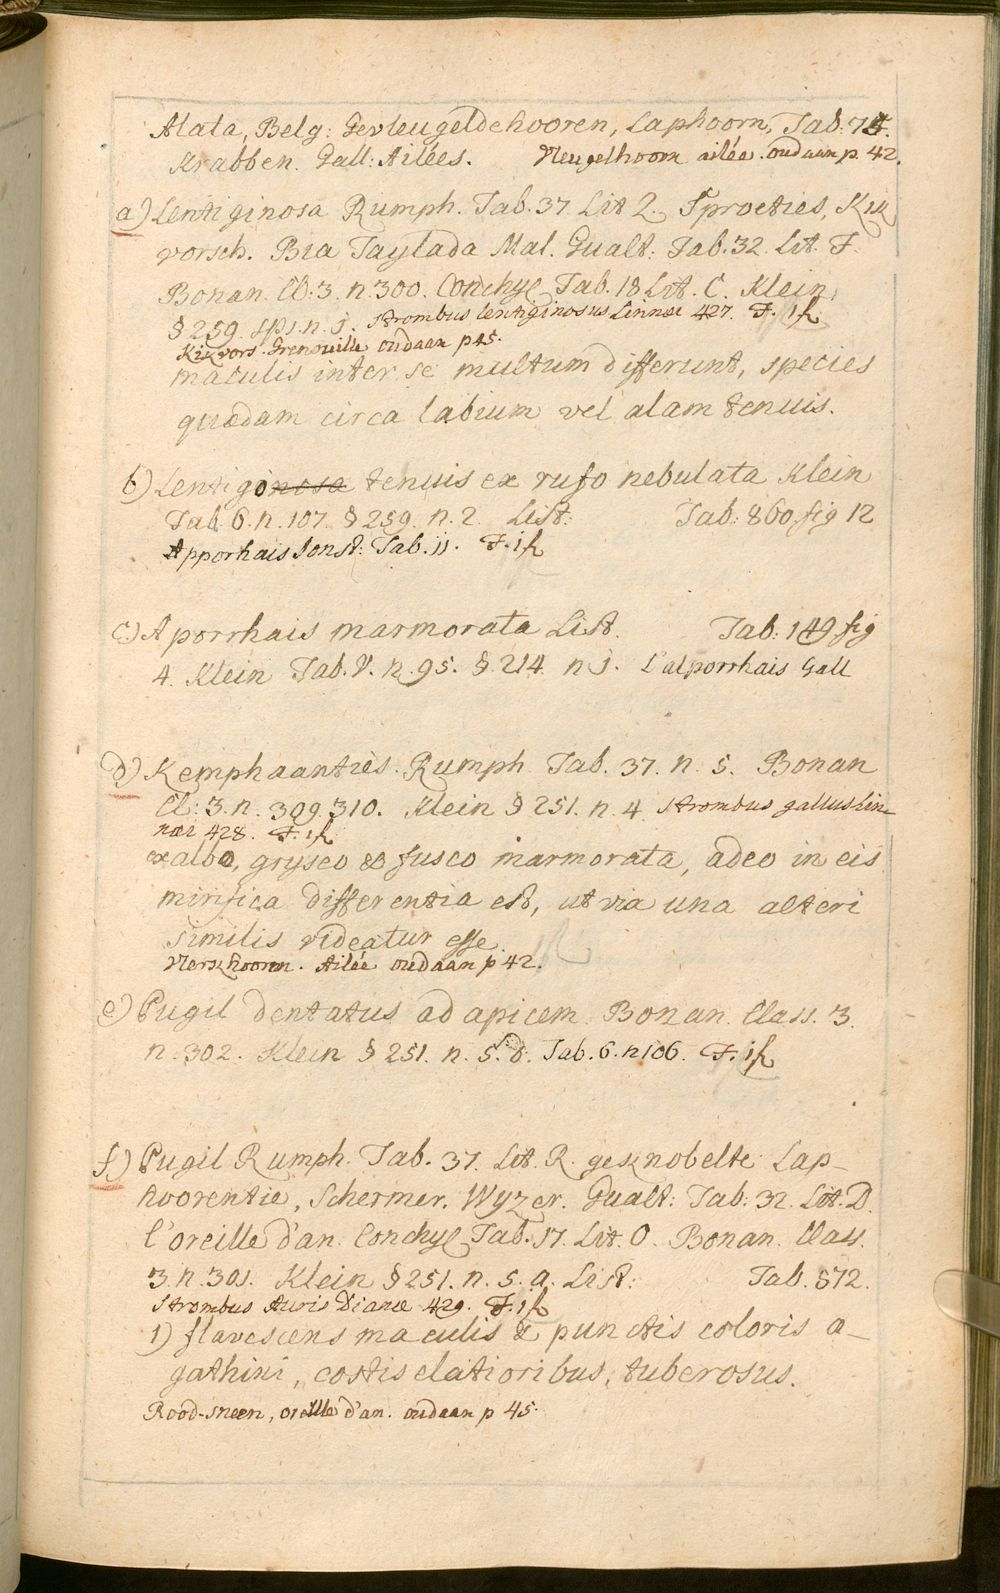 Alata, Belg: Gevleugelde hooren, Laphoorn, Tab: 74.
Krabben. Gall: Ailées. Vleugelhoorn ailée. oudaan p. 42.
a) Lentiginosa Rumph. Tab. 37. Lit Q. Sproeties, Kik
vorsch. Bia Taylada Mal. Gualt: Tab. 32. Lit. F.
Bonan. Cl: 3. n. 300. Conchyl. Tab. 18 Lit. C. Klein,
§ 259. sp. 1. n. 1. Strombus lentiginosus Linnæi 427. F. 1 f
Kikvors. Grenouille oudaan p 45.
maculis inter se multum differunt, species
quædam circa labium vel alam tenuis.
b) Lentiginosa tenuis ex rufo nebulata Klein
Tab 6. n. 107. § 259. n. 2. List: Tab: 860 fig 12
Apporhais Jonst: Tab. 11. F. 1 f
c) Aporrhais marmorata List. Tab: 149 fig
4. Klein Tab. V. n. 95. § 214 n 1. L'alporrhais Gall
d) Kemphaanties. Rumph Tab. 37. n. 5. Bonan
Cl: 3. n. 309. 310. Klein § 251. n. 4 Strombus gallus Lin-
næi 428. F. 1 f
ex albo, gryseo & fusco marmorata, adeo in eis
mirifica differentia est, ut via una alteri
similis videatur esse.
oudaan p 42. Ailée
e) Pugil dentatus ad apicem. Bonan. Class. 3.
n. 302. Klein § 251. n. 5. d. Tab. 6. n 106. F. 1 f
f) Pugil Rumph. Tab. 37. Lit. R. geknobelte Lap-
hoorentie, Schermer. Wyzer. Gualt: Tab: 32. Lit. D.
l'oreille d'an. Conchyl. Tab. 17. Lit. O. Bonan. Class.
3. n. 301. Klein § 251. n. 5. a. List: Tab. 872.
Strombus Auris Dianæ 429. F. 1 f
1) flavescens maculis & punctis coloris a-
gathini, costis elatioribus, tuberosus.
Rood-sneen, oreille d'an. oudaan p 45.